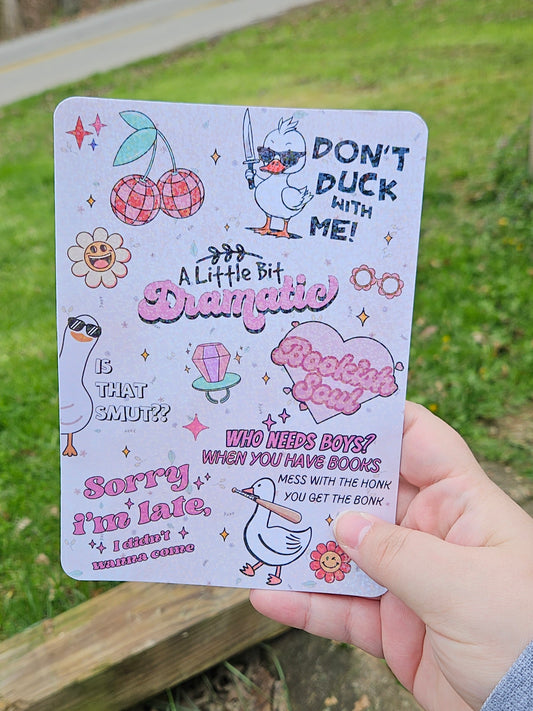 DON'T
DUCK
WITH
ME!
A LITTLE BIT
Dramatic
IS
THAT
SMUT??
Bookish
Soul
WHO NEEDS BOYS?
WHEN YOU HAVE BOOKS
MESS WITH THE HONK
YOU GET THE BONK
Sorry
i'm late,
I didn't
wanna come